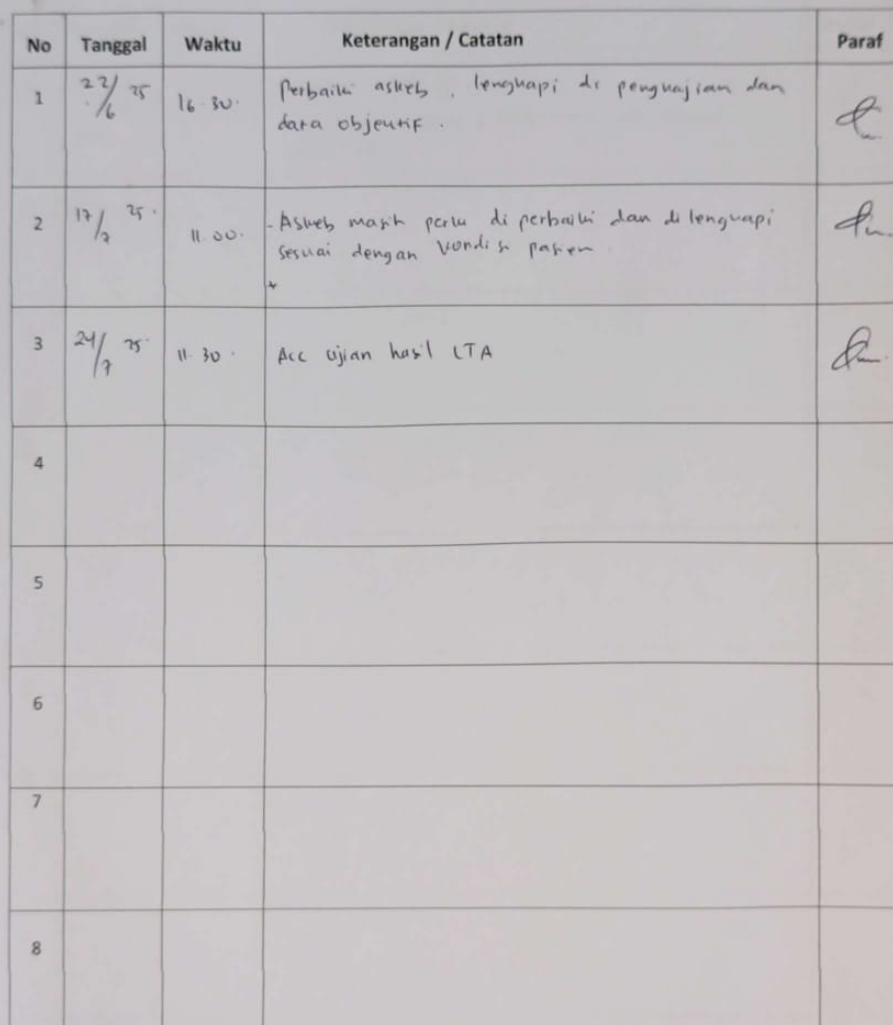 No Tanggal Waktu Keterangan / Catatan Paraf
1 22/6 25 16.30. Perbaiki askeb, lengkapi di pengkajian dan
data objektif.
2 17/7 25. 11.00. - Askeb masih perlu di perbaiki dan di lengkapi
sesuai dengan kondisi pasien.
3 24/7 25. 11.30. Acc ujian hasil LTA
4
5
6
7
8